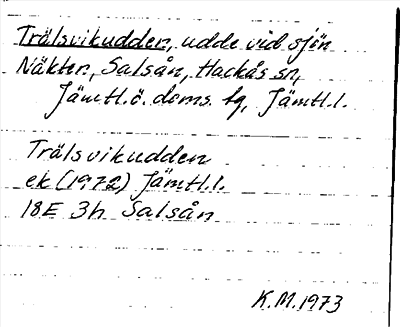 Trälsvikudden, udde vid sjön
Näkten, Salsån, Hackås sn,
Jämtl.ö. doms. tg, Jämtl.l.
Trälsvikudden
ek (1972) Jämtl.l.
18E 3h Salsån
K.M.1973